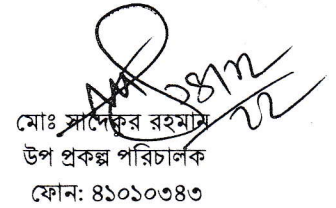 ০৪/১২/২২
মোঃ সাদেকুর রহমান
উপ প্রকল্প পরিচালক
ফোন: ৪১০১০৩৪৩